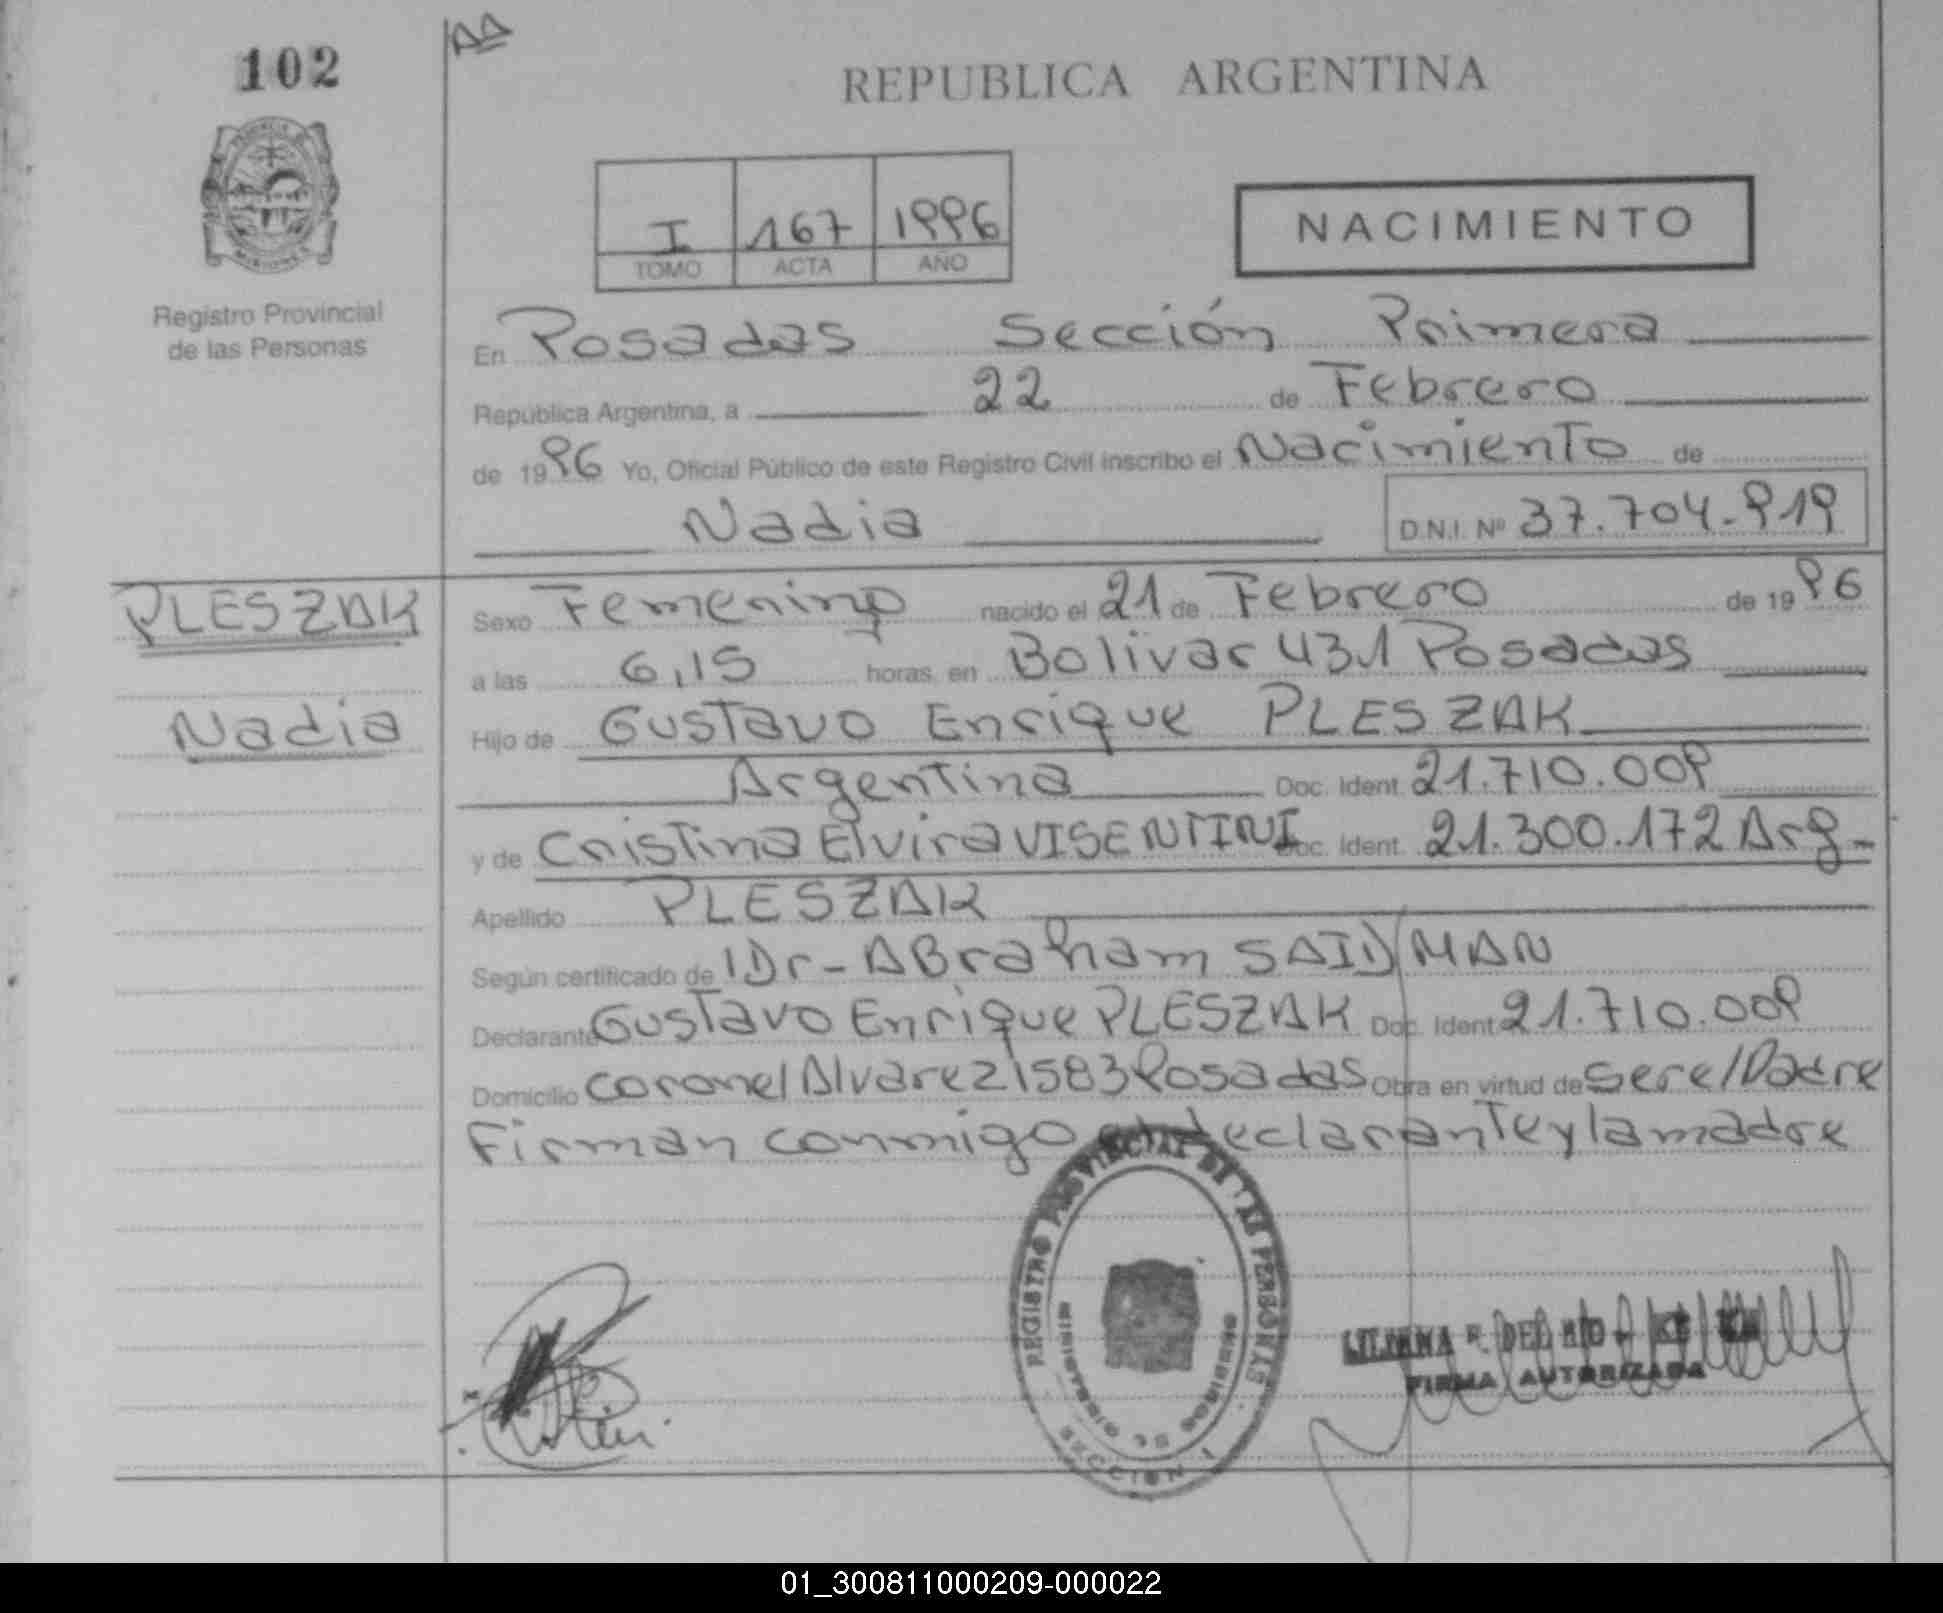 102
REPUBLICA ARGENTINA
I 167 1996
TOMO ACTA AÑO
NACIMIENTO
Registro Provincial
de las Personas
En Posadas Sección Primera
República Argentina, a 22 de Febrero
de 1996 Yo, Oficial Público de este Registro Civil inscribo el Nacimiento de
Nadia D.N.I. Nº 37.704.919
PLESZAK
Nadia
Sexo Femenino nacido el 21 de Febrero de 1996
a las 6,15 horas, en Bolivar 431 Posadas
Hijo de Gustavo Enrique PLESZAK
Argentina Doc. Ident. 21.710.009
y de Cristina Elvira VISENTINI Doc. Ident. 21.300.172 Arg-
Apellido PLESZAK
Según certificado de Dr- ABraham SAIDMAN
Declarante Gustavo Enrique PLESZAK Doc. Ident 21.710.009
Domicilio Coronel Alvarez 1583 Posadas Obra en virtud de ser el Padre
Firman conmigo el declarante y la madre
REGISTRO PROVINCIAL DE LAS PERSONAS
MINISTERIO DE GOBIERNO
SECCION 1
LILIANA F. DEL RIO
FIRMA AUTORIZADA
01_300811000209-000022